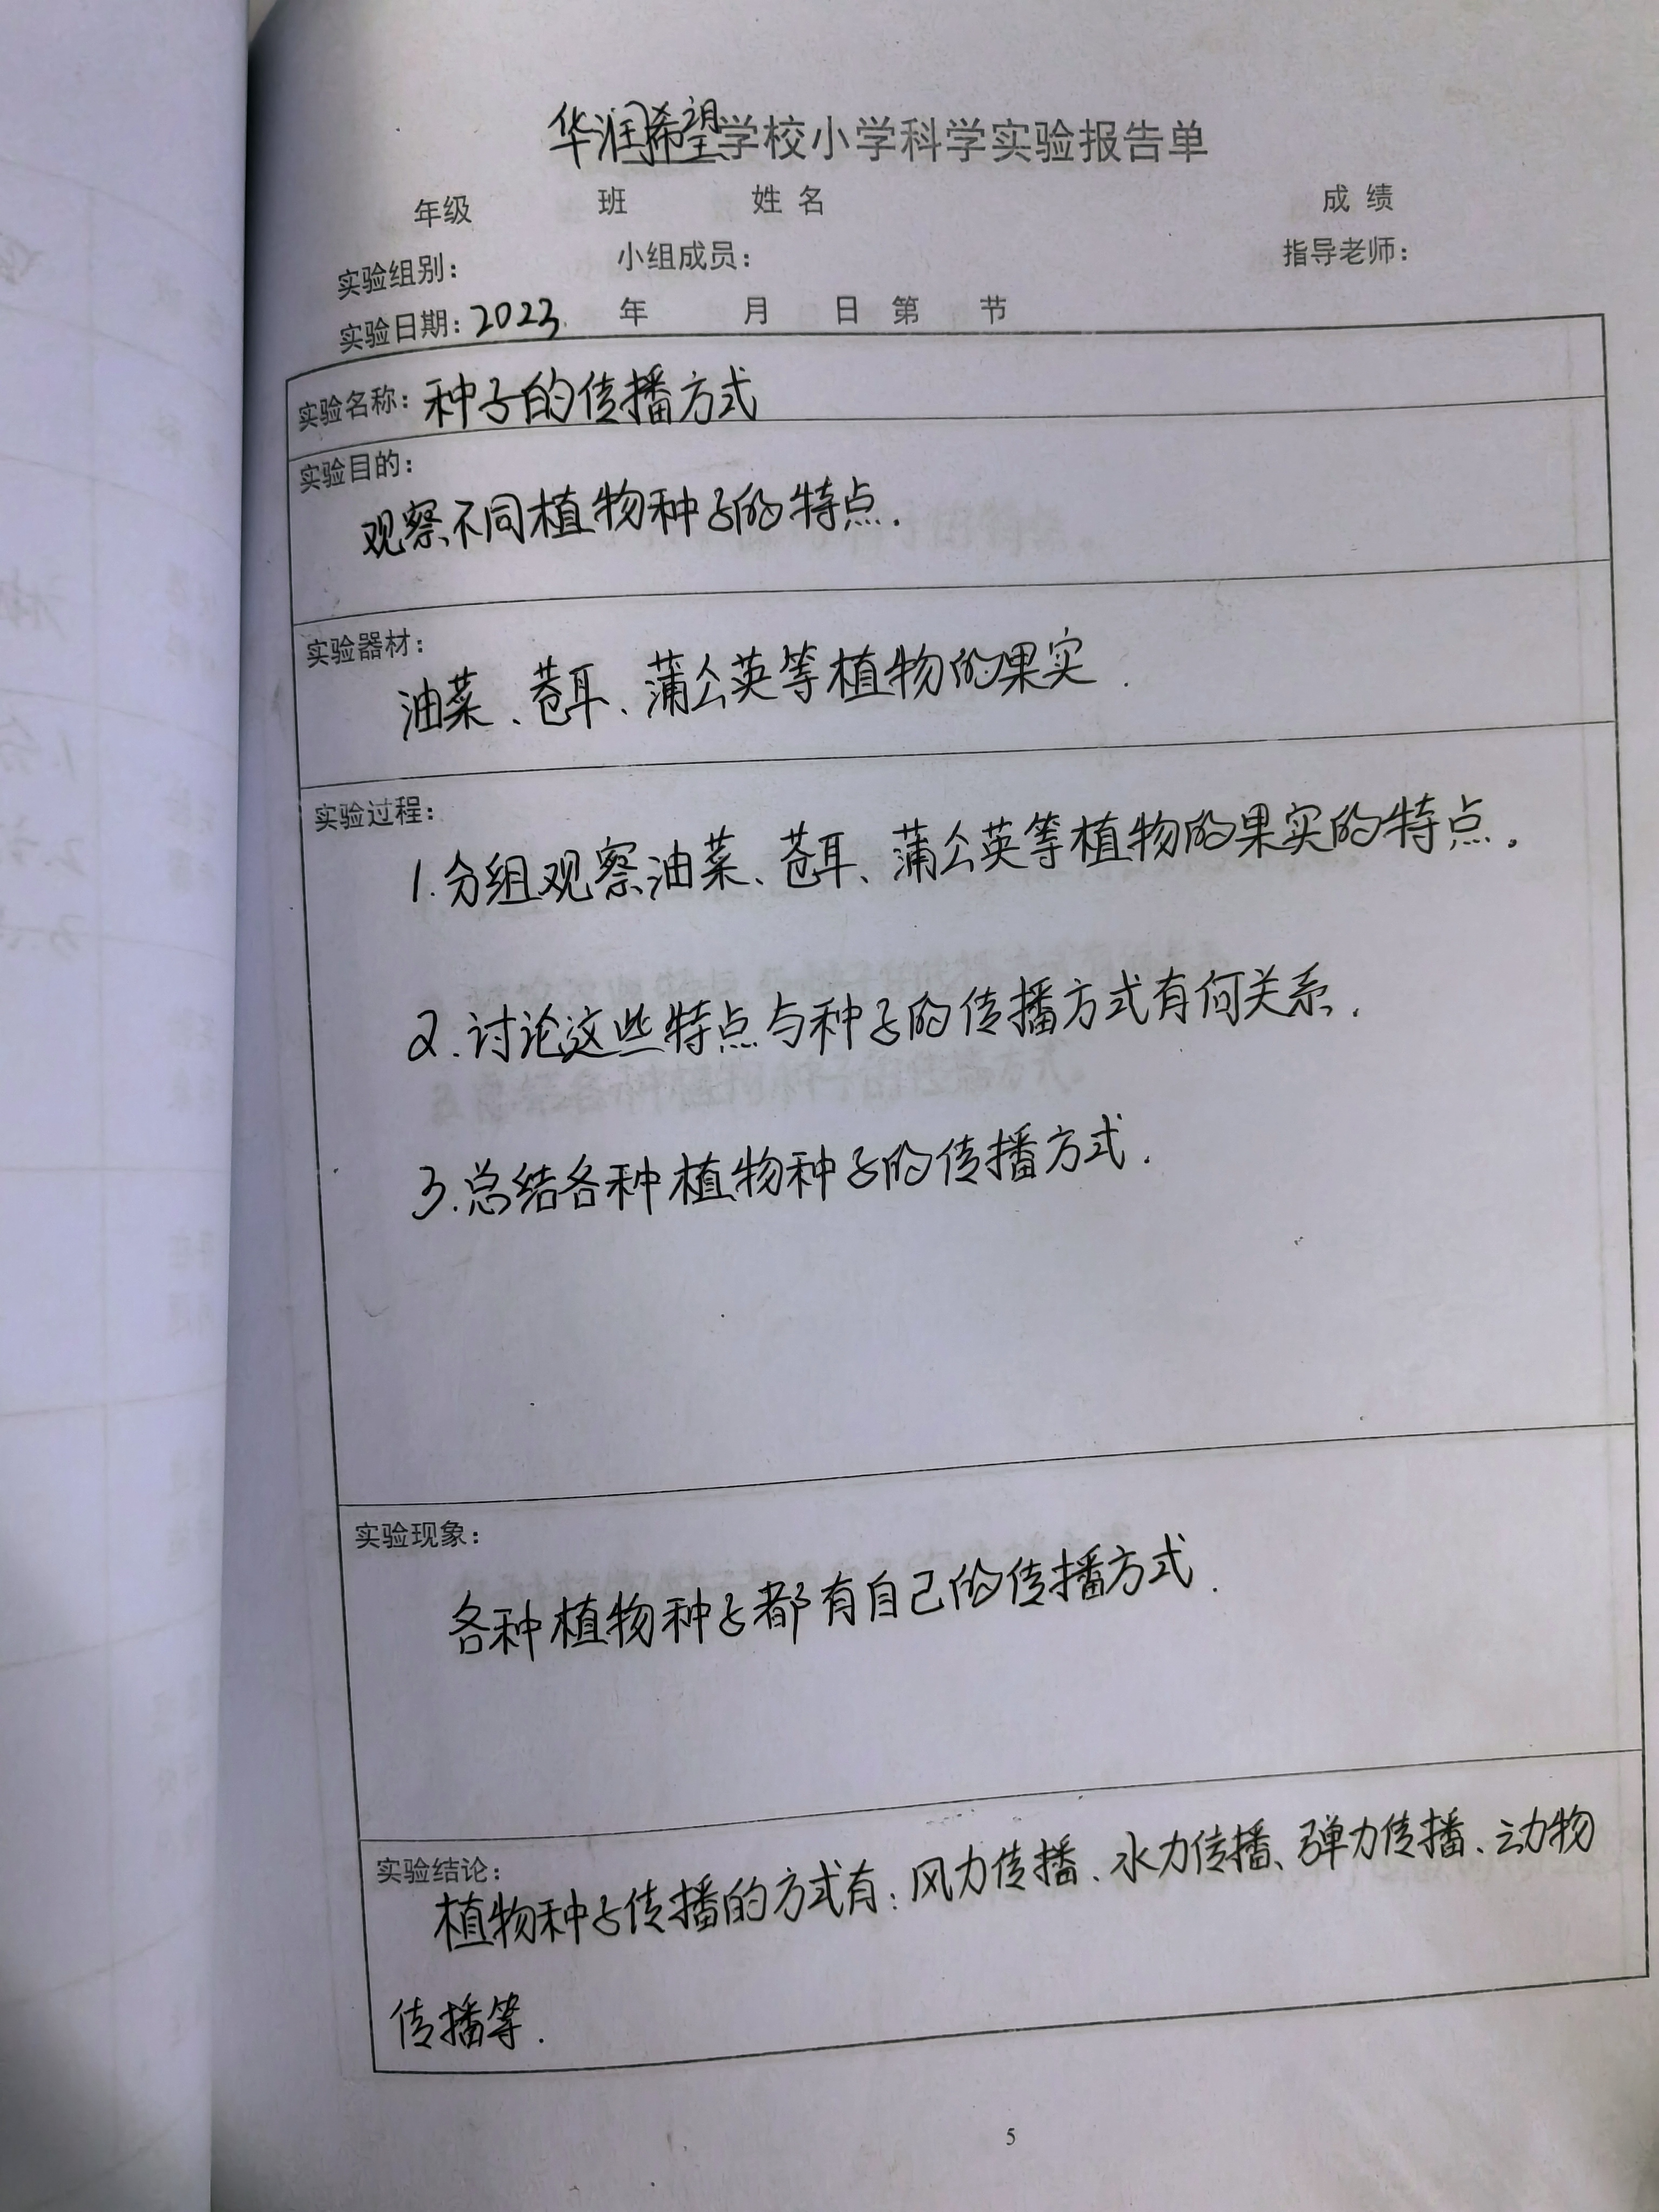 华润希望学校小学科学实验报告单
年级 班 姓名 成绩
实验组别： 小组成员： 指导老师：
实验日期：2023 年 月 日 第 节
实验名称：种子的传播方式
实验目的：
观察不同植物种子的特点.
实验器材：
油菜、苍耳、蒲公英等植物的果实.
实验过程：
1.分组观察油菜、苍耳、蒲公英等植物的果实的特点.
2.讨论这些特点与种子的传播方式有何关系.
3.总结各种植物种子的传播方式.
实验现象：
各种植物种子都有自己的传播方式.
实验结论：
植物种子传播的方式有:风力传播、水力传播、弹力传播、动物
传播等.
5